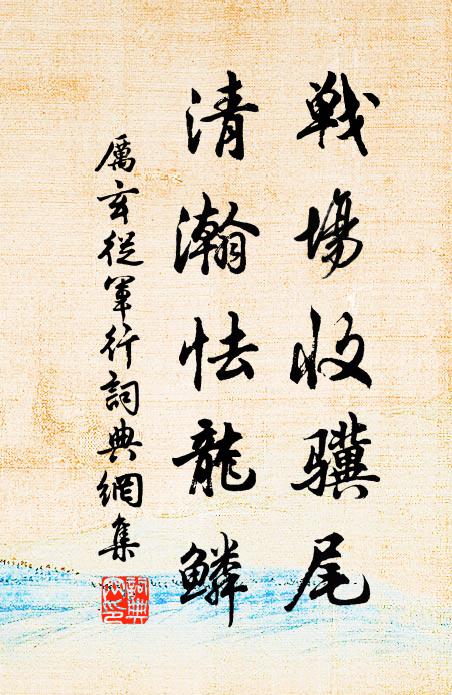 戦場收驥尾
清瀚怯龍鱗
厲玄從軍行詞典網集